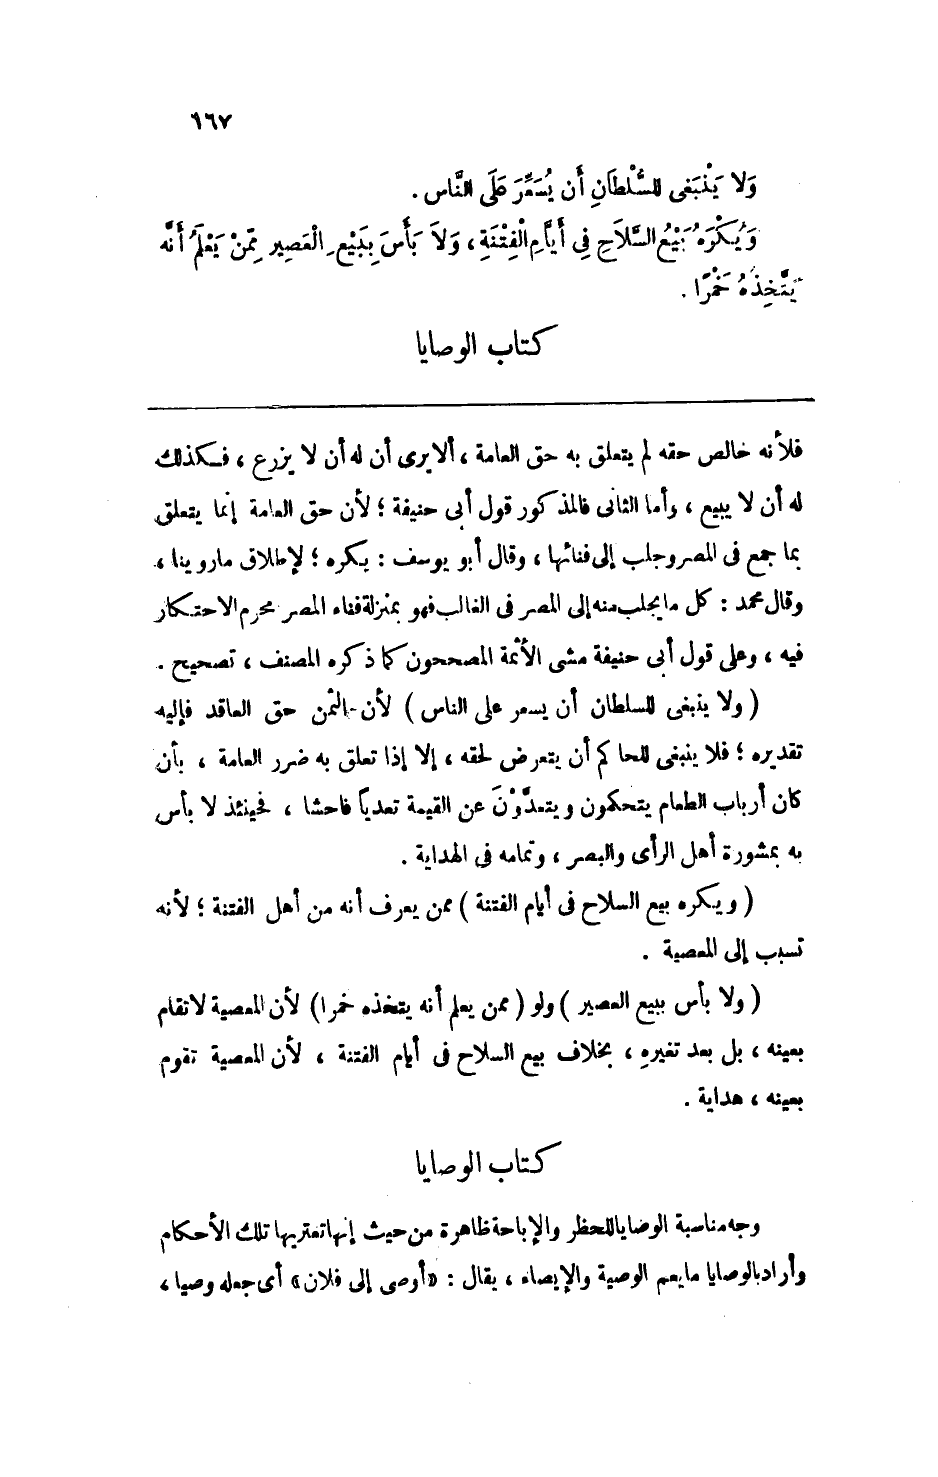 ١٦٧
وَلا يَنْبَغِى لِلسُّلْطَانِ أَن يُسَعِّرَ عَلَى النَّاس .
وَيُكْرَهُ بَيْعُ السَّلاَحِ فِى أَيَّامِ الْفِتْنَةِ ، وَلاَ بَأْسَ بِبَيْعِ الْعَصِيرِ مِمَّنْ يَعْلَمُ أَنَّه
يَتَّخِذُهُ خَمْرًا .
كتاب الوصايا
فلأنه خالص حقه لم يتعلق به حق العامة ، ألا يرى أن له أن لا يزرع ، فكذلك
له أن لا يبيع ، وأما الثانى فالمذكور قول أبى حنيفة ؛ لأن حق العامة إنما يتعلق
بما جمع فى المصر وجلب إلى فنائها ، وقال أبو يوسف : يكره ؛ لإطلاق ماروينا ،
وقال محمد : كل ما يجلب منه إلى المصر فى الغالب فهو بمنزلة فناء المصر محرم الاحتكار
فيه ، وعلى قول أبى حنيفة مشى الأئمة المصححون كما ذكره المصنف ، تصحيح .
( ولا ينبغى للسلطان أن يسعر على الناس ) لأن الثمن حق العاقد فإليه
تقديره ؛ فلا ينبغى للحاكم أن يتعرض لحقه ، إلا إذا تعلق به ضرر العامة ، بأن
كان أرباب الطعام يتحكمون ويتعدَّوْنَ عن القيمة تعدياً فاحشا ، فحينئذ لا بأس
به بمشورة أهل الرأى والبصر ، وتمامه فى الهداية .
( ويكره بيع السلاح فى أيام الفتنة ) ممن يعرف أنه من أهل الفتنة ؛ لأنه
تسبب إلى المعصية .
( ولا بأس ببيع العصير ) ولو ( ممن يعلم أنه يتخذه خمرا ) لأن المعصية لا تقام
بعينه ، بل بعد تغيره ، بخلاف بيع السلاح فى أيام الفتنة ، لأن المعصية تقوم
بعينه ، هداية .
كتاب الوصايا
وجه مناسبة الوضايا للحظر والإباحة ظاهرة من حيث إنها تعتريها تلك الأحكام
وأراد بالوصايا ما يعم الوصية والإيصاء ، يقال : «أوصى إلى فلان» أى جعله وصيا ،